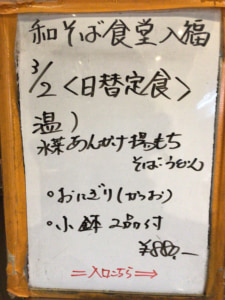 和そば食堂入福
3/2 <日替定食>
温)
水菜あんかけ揚もち
そば・うどん
・おにぎり(かつお)
・小鉢2品付
¥880.-
=入口こちら⇒